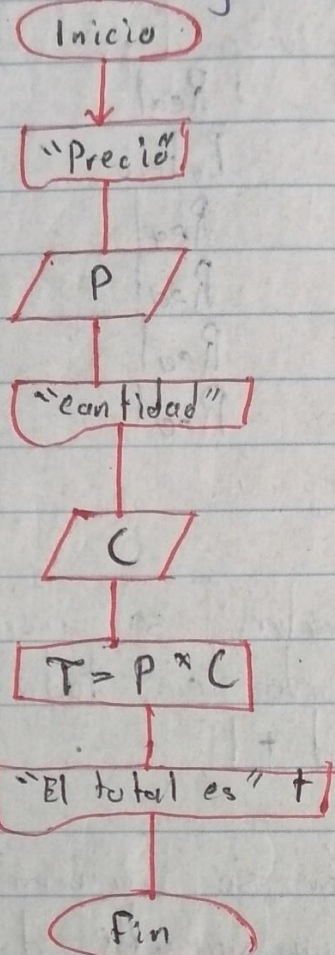 Inicio
"Precio"
P
"cantidad"
C
T = P * C
"El total es" t
Fin